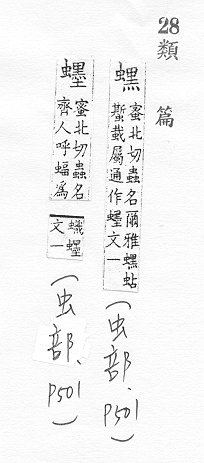 28
類篇
蟔
蜜北切蟲名爾雅蟔蛅
蟴蛓屬通作䘃文一
(虫部.P501)
䘃
蜜北切蟲名
齊人呼蝠為
蟙䘃
文一
(虫部.P501)